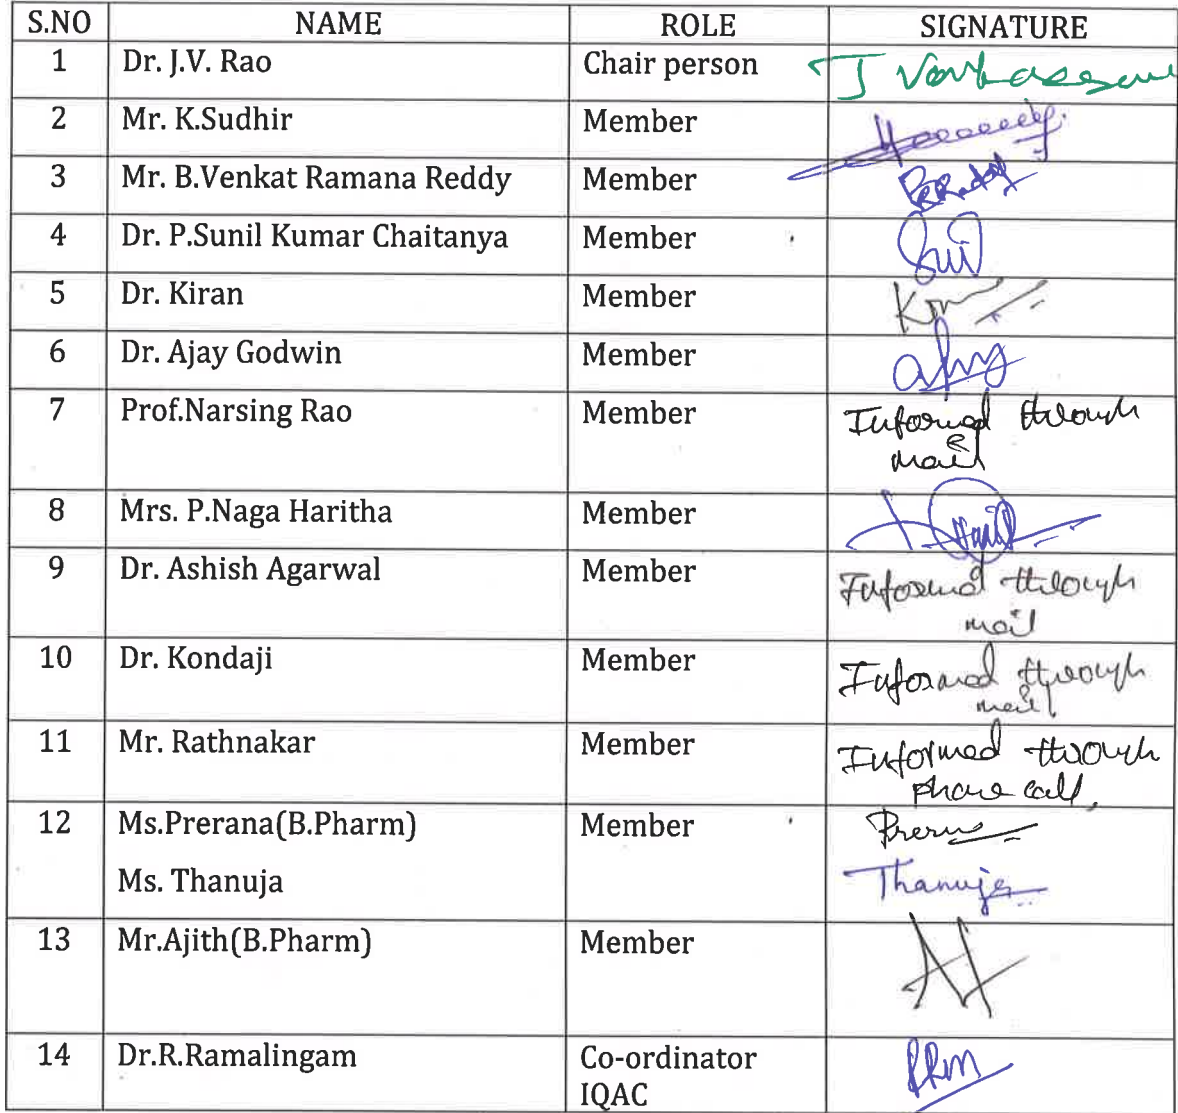 S.NO NAME ROLE SIGNATURE
1 Dr. J.V. Rao Chair person
2 Mr. K.Sudhir Member
3 Mr. B.Venkat Ramana Reddy Member
4 Dr. P.Sunil Kumar Chaitanya Member
5 Dr. Kiran Member
6 Dr. Ajay Godwin Member
7 Prof.Narsing Rao Member Informed through
mail
8 Mrs. P.Naga Haritha Member
9 Dr. Ashish Agarwal Member Informed through
mail
10 Dr. Kondaji Member Informed through
mail
11 Mr. Rathnakar Member Informed through
phone call,
12 Ms.Prerana(B.Pharm) Member
Ms. Thanuja Thanuja
13 Mr.Ajith(B.Pharm) Member
14 Dr.R.Ramalingam Co-ordinator
IQAC